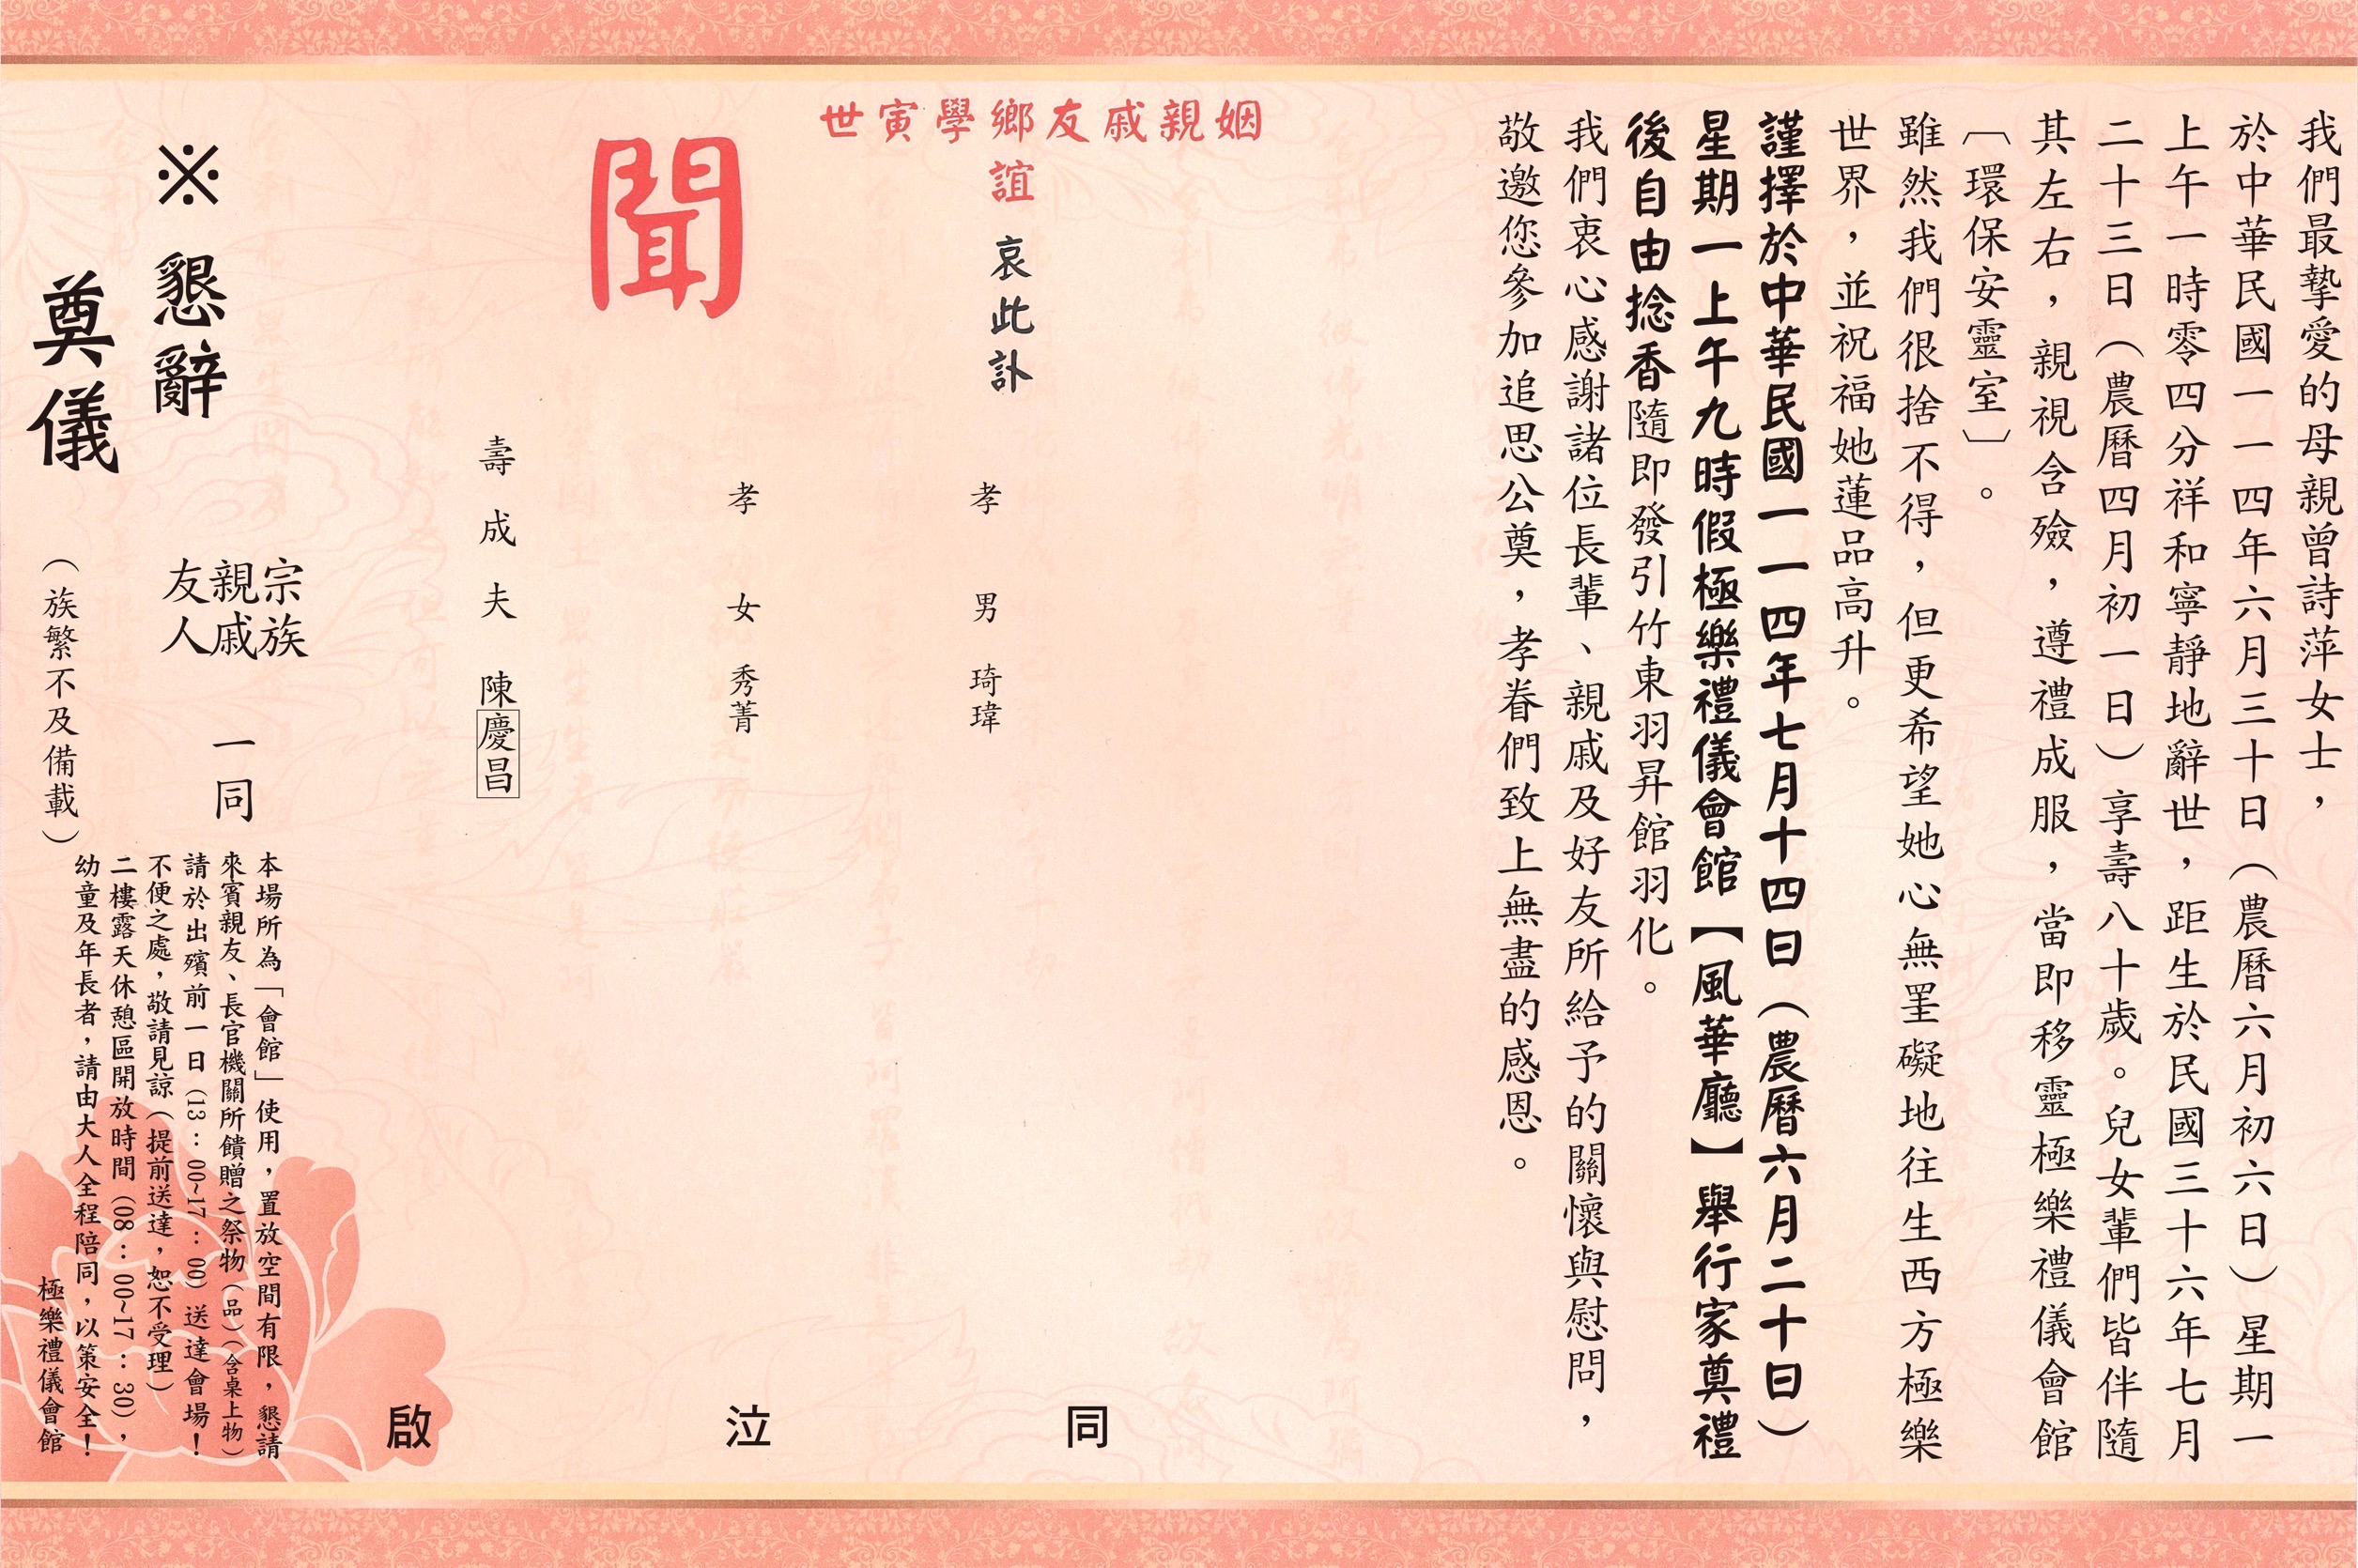 我們最摯愛的母親曾詩萍女士，
於中華民國一一四年六月三十日（農曆六月初六日）星期一
上午一時零四分祥和寧靜地辭世，距生於民國三十六年七月
二十三日（農曆四月初一日）享壽八十歲。兒女輩們皆伴隨
其左右，親視含殮，遵禮成服，當即移靈極樂禮儀會館
〔環保安靈室〕。
雖然我們很捨不得，但更希望她心無罣礙地往生西方極樂
世界，並祝福她蓮品高升。
謹擇於中華民國一一四年七月十四日（農曆六月二十日）
星期一上午九時假極樂禮儀會館【風華廳】舉行家奠禮
後自由捻香隨即發引竹東羽昇館羽化。
我們衷心感謝諸位長輩、親戚及好友所給予的關懷與慰問，
敬邀您參加追思公奠，孝眷們致上無盡的感恩。
姻親戚友鄉學寅世
誼 哀此訃
聞
孝男 琦瑋
孝女 秀菁
壽成夫 陳慶昌
同泣啟
宗族
親戚 一同
友人
（族繁不及備載）
※懇辭
奠儀
本場所為「會館」使用，置放空間有限，懇請
來賓親友、長官機關所饋贈之祭物（品）（含桌上物）
請於出殯前一日（13：00~17：00）送達會場！
不便之處，敬請見諒（提前送達，恕不受理）
二樓露天休憩區開放時間（08：00~17：30），
幼童及年長者，請由大人全程陪同，以策安全！
極樂禮儀會館